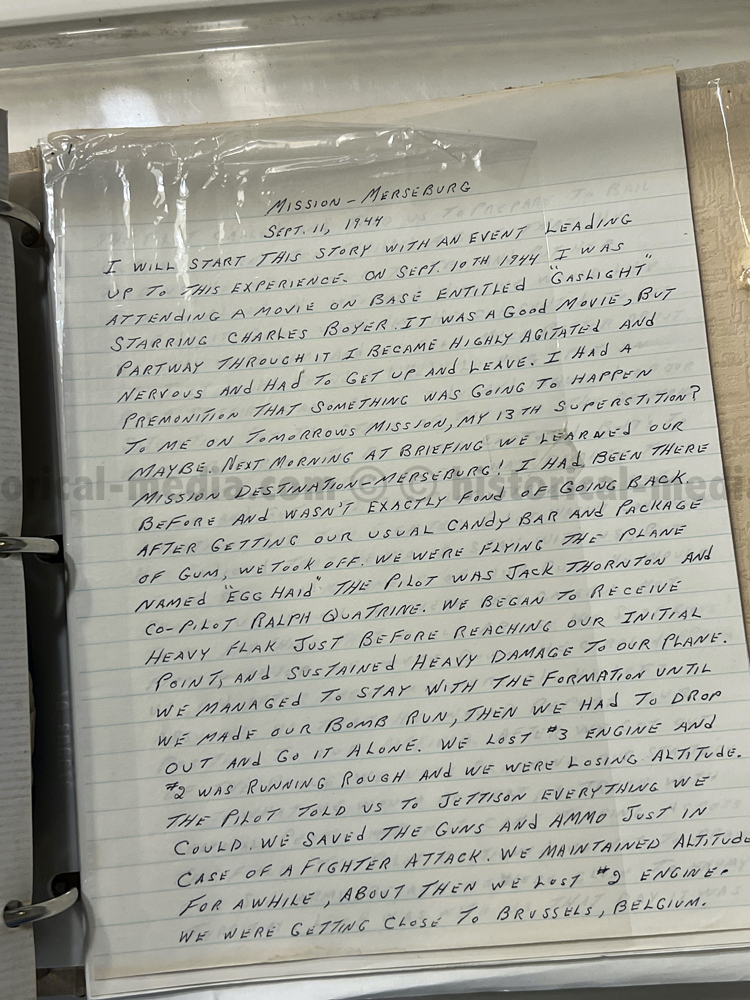 MISSION - MERSEBURG
SEPT. 11, 1944
I WILL START THIS STORY WITH AN EVENT LEADING
UP TO THIS EXPERIENCE. ON SEPT. 10TH 1944 I WAS
ATTENDING A MOVIE ON BASE ENTITLED "GASLIGHT"
STARRING CHARLES BOYER. IT WAS A GOOD MOVIE, BUT
PARTWAY THROUGH IT I BECAME HIGHLY AGITATED AND
NERVOUS AND HAD TO GET UP AND LEAVE. I HAD A
PREMONITION THAT SOMETHING WAS GOING TO HAPPEN
TO ME ON TOMORROWS MISSION, MY 13TH SUPERSTITION?
MAYBE. NEXT MORNING AT BRIEFING WE LEARNED OUR
MISSION DESTINATION-MERSEBURG! I HAD BEEN THERE
BEFORE AND WASN'T EXACTLY FOND OF GOING BACK.
AFTER GETTING OUR USUAL CANDY BAR AND PACKAGE
OF GUM, WE TOOK OFF. WE WERE FLYING THE PLANE
NAMED "EGG HAID" THE PILOT WAS JACK THORNTON AND
CO-PILOT RALPH QUATRINE. WE BEGAN TO RECEIVE
HEAVY FLAK JUST BEFORE REACHING OUR INITIAL
POINT, AND SUSTAINED HEAVY DAMAGE TO OUR PLANE.
WE MANAGED TO STAY WITH THE FORMATION UNTIL
WE MADE OUR BOMB RUN, THEN WE HAD TO DROP
OUT AND GO IT ALONE. WE LOST #3 ENGINE AND
#2 WAS RUNNING ROUGH AND WE WERE LOSING ALTITUDE.
THE PILOT TOLD US TO JETTISON EVERYTHING WE
COULD. WE SAVED THE GUNS AND AMMO JUST IN
CASE OF A FIGHTER ATTACK. WE MAINTAINED ALTITUDE
FOR AWHILE, ABOUT THEN WE LOST #2 ENGINE.
WE WERE GETTING CLOSE TO BRUSSELS, BELGIUM.
orical-media.com © © historical-medi